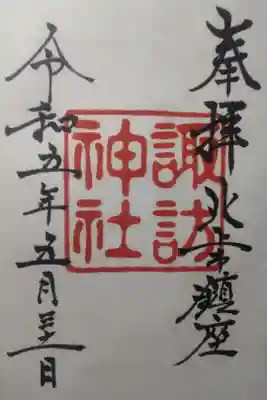 奉拝
鎮座
諏訪
神社
令和五年五月一日